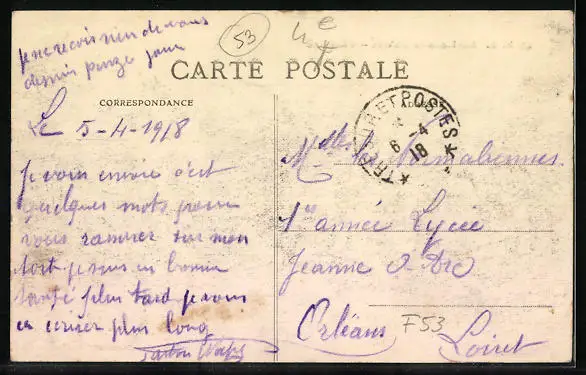 je ne recois rien de vous
depuis quinze jours
53
CARTE POSTALE
CORRESPONDANCE
TRESOR ET POSTES
6-4
18
Le 5-4-1918
je vous envoie c'est
quelques mots pour
vous rassurer sur mon
sort je suis en bonne
santé plus tard je vous
en écrirer plus long
Gaston
Mlles les Normaliennes
1re année Lycée
Jeanne d'Arc
Orléans
F53
Loiret